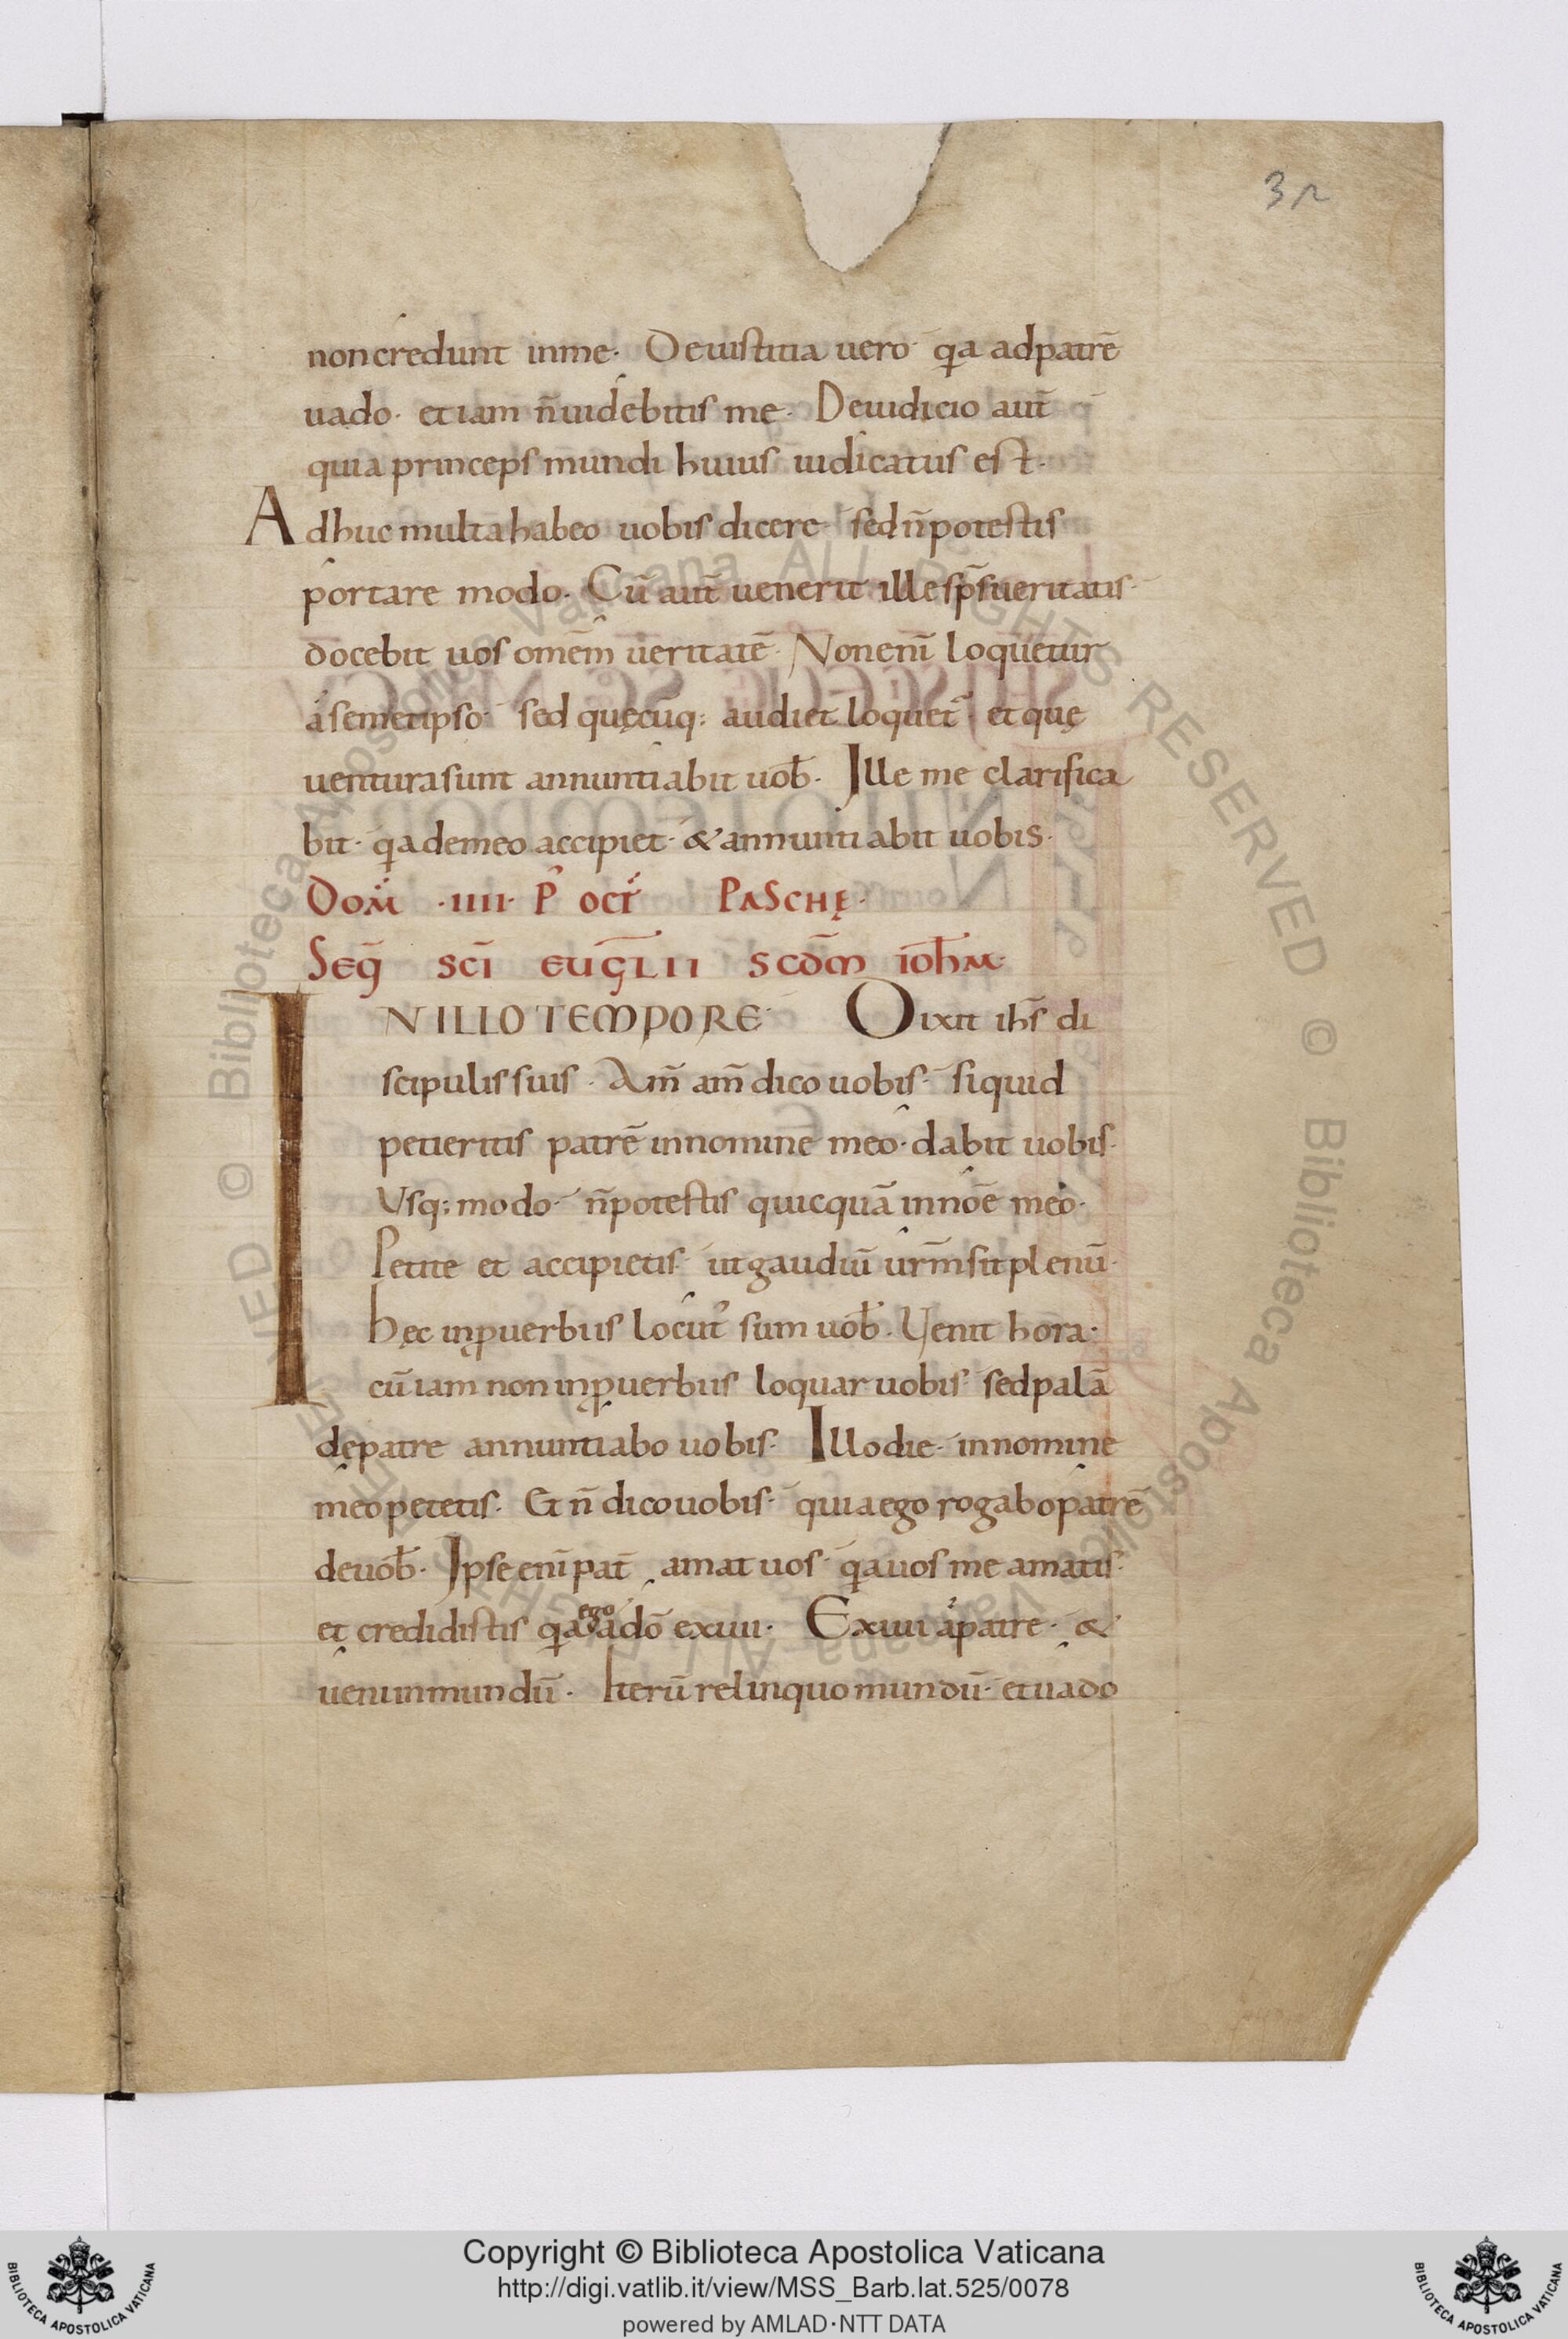 3r
non credunt in me. De iustitia uero qa ad patrē
uado. et iam n̄ uidebitis me. De iudicio aut̄
quia princeps mundi huius iudicatus est.
Adhuc multa habeo uobis dicere sed n̄ potestis
portare modo. Cū aut̄ uenerit ille sp̄s ueritatis.
docebit uos omēm ueritatē. Non enī loquetur
a semetipso. sed quęcūq; audiet loquet̄. et quę
uentura sunt annuntiabit uob̄. Ille me clarifica
bit. qa de meo accipiet. & annuntiabit uobis.
Dom̄ .IIII. P' oct̄ PASCHĘ.
Seq̄ sc̄i eug̅lii scdm̄ ioh̄m.
IN ILLO TEMPORE. Dixit ih̄s di
scipulis suis. Am̄ am̄ dico uobis. siquid
petieritis patrē in nomine meo. dabit uobis.
Vsq; modo. n̄ potestis quicquā in noē meo.
Petite et accipietis. ut gaudiū ur̄m sit plenū.
hęc in ꝓuerbiis locut' sum uob̄. Uenit hora.
cū iam non in ꝓuerbiis loquar uobis. sed palā
de patre annuntiabo uobis. Illo die. in nomine
meo petetis. Et n̄ dico uobis. quia ego rogabo patrē
de uob̄. Ipse enī pat̄ amat uos. qa uos me amatis.
et credidistis qa ego a dō exiui. Exiui a patre. &
ueni in mundū. Iterū relinquo mundū. et uado
© Biblioteca Apostolica Vaticana ALL RIGHTS RESERVED
Copyright © Biblioteca Apostolica Vaticana
http://digi.vatlib.it/view/MSS_Barb.lat.525/0078
powered by AMLAD·NTT DATA
BIBLIOTECA APOSTOLICA VATICANA
BIBLIOTECA APOSTOLICA VATICANA